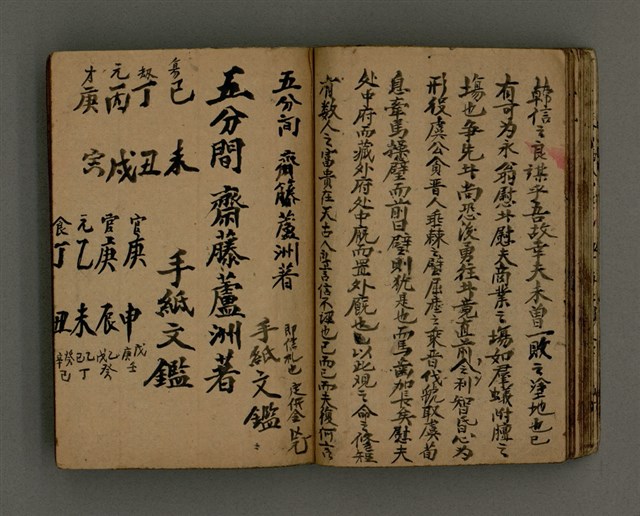 韓信之良謀乎吾故幸夫未曾一敗之塗地也已
有可为永翁慰廾慰夫商業之場如羣蟻附膻之
場也争先廾尚恐後勇往廾竟直前人之利智昏心为
形役虞公貪晋人乘棘之璧屈產之乘晋伐虢取虞荀
息牽馬操璧而前曰璧則犹是也而馬齒加長矣慰夫
处中府而藏外府处中厩而置外厩也以此观之命之修短
有数人之富貴在天古人之言信不誣也已而已而夫復何言
五分间 齋藤蘆洲著
手紙文鑑
即信札也 定供金
五分間 齋藤蘆洲著
手紙文鑑
傷己未
丁丑
元丙戌
才庚寅
官庚申
戊庚壬
官庚辰
乙戊癸
元乙未
乙己丁
食丁丑
癸辛己